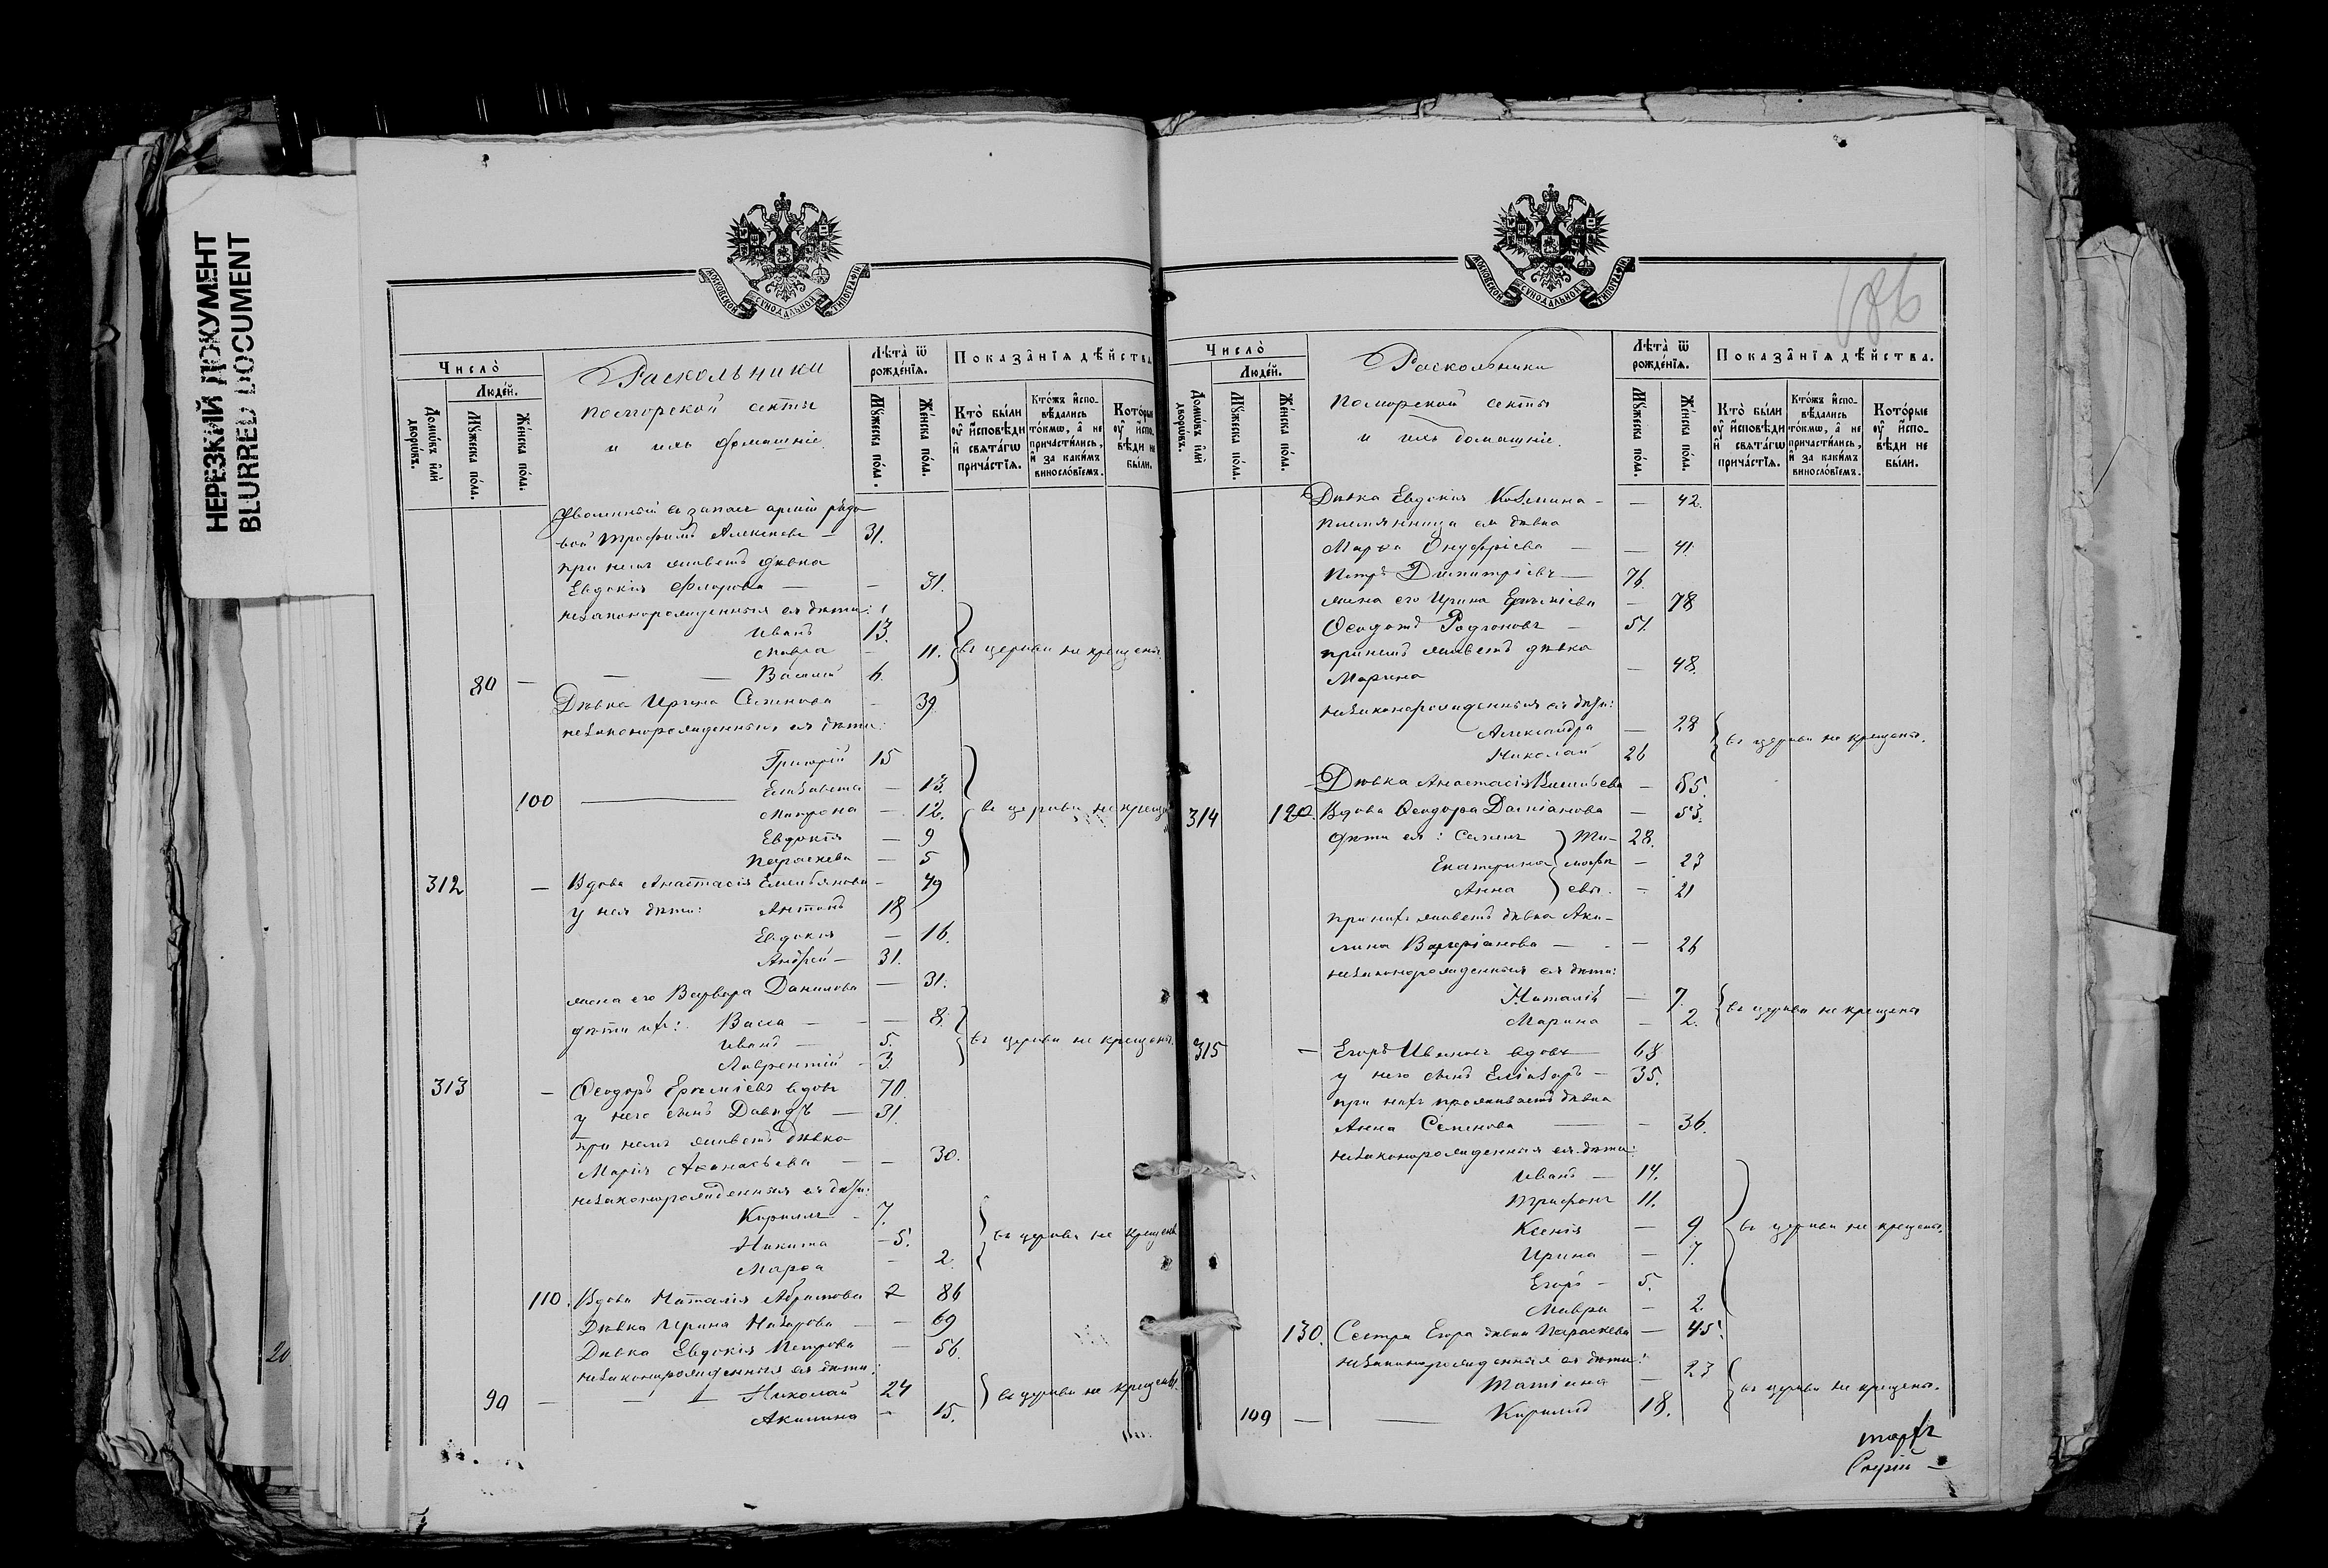 НЕРЕЗКИЙ ДОКУМЕНТ
BLURRED DOCUMENT
МОСКОВСКОЙ СѴНОДАЛЬНОЙ ТИПОГРАФІИ
Число̀
Людéй.
Домѡ́въ и҆лѝ дворѡ́въ.
Мꙋ́жеска по́ла.
Же́нска по́ла.
Раскольники
поморской секты
и ихъ домашніе.
Лѣта̀ ѿ рожде́нїѧ.
Мꙋ́жеска по́ла.
Же́нска по́ла.
Показа̑нїѧ дѣ́йства.
Кто̀ бы́ли ᲂу҆ и҆сповѣ́ди и҆ свѧта́гѡ прича́стїѧ.
Кто́жъ и҆спо-вѣ́дались то́кмѡ, а҆ не причасти́лись, и҆ за каки́мъ винослѡ́вїемъ.
Кото́рые ᲂу҆ и҆спо-вѣ́ди не бы́ли.
Уволенный въ запасъ арміи рядо-
вой Трофимъ Алексѣевъ — 31.
при немъ живетъ дѣвка
Евдокія Флорова — — 31.
незаконорожденныя ея дѣти:
Иванъ 13.
Мавра — 11. въ церкви не крещены.
80 — — — Василій 6.
Дѣвка Ирина Семенова — 39
незаконорожденныя ея дѣти:
Григорій 15
100 — Елизавета — 13.
Матрона — 12. въ церкви не крещены
Евдокія — 9
Параскева — 5
312 — Вдова Анастасія Емельянова — 49
у нея дѣти: Антонъ 18
Евдокія — 16.
Андрей — 31.
жена его Варвара Данилова — 31.
дѣти ихъ: Васса — — 8.
Иванъ — 5. въ церкви не крещены.
Лаврентій — 3
313 — Ѳеодоръ Ереміевъ вдовъ 70.
у него сынъ Давидъ — 31.
при немъ живетъ дѣвка
Марія Аѳанасьева — — 30.
незаконорожденныя ея дѣти:
Кириллъ — 7.
Никита — 5. въ церкви не крещены
Марѳа — 2.
110. Вдова Наталія Абрамова 86
Дѣвка Ирина Назарова — — 69
Дѣвка Евдокія Петрова — 56.
незаконорожденныя ея дѣти:
90 — — Николай 24 въ церкви не крещены.
Акилина — 15.
МОСКОВСКОЙ СѴНОДАЛЬНОЙ ТИПОГРАФІИ
Число̀
Людéй.
Домѡ́въ и҆лѝ дворѡ́въ.
Мꙋ́жеска по́ла.
Же́нска по́ла.
Раскольники
поморской секты
и ихъ домашніе.
Лѣта̀ ѿ рожде́нїѧ.
Мꙋ́жеска по́ла.
Же́нска по́ла.
Показа̑нїѧ дѣ́йства.
Кто̀ бы́ли ᲂу҆ и҆сповѣ́ди и҆ свѧта́гѡ прича́стїѧ.
Кто́жъ и҆спо-вѣ́дались то́кмѡ, а҆ не причасти́лись, и҆ за каки́мъ винослѡ́вїемъ.
Кото́рые ᲂу҆ и҆спо-вѣ́ди не бы́ли.
Дѣвка Евдокія Козмина — — 42.
племянница ея дѣвка
Марѳа Онуфріева — — 41.
Петръ Димитріевъ — 76.
жена его Ирина Ереміева — 78
Ѳеодотъ Родіоновъ — 51.
при немъ живетъ дѣвка
Марина — 48.
незаконорожденныя ея дѣти:
Александра — 28
Николай 26 въ церкви не крещены.
Дѣвка Анастасія Васильева — 65.
314 120. Вдова Ѳеодора Даміанова — 53.
дѣти ея: Семенъ Ти- 28.
Екатерина моѳе- — 23
Анна евы. — 21
при нихъ живетъ дѣвка Аки-
лина Валеріанова — — 26
незаконорожденныя ея дѣти:
Наталія — 7.
Марина — 2. въ церкви не крещены
315 — Егоръ Ивановъ вдовъ — 68
у него сынъ Еліазаръ — 35.
при нихъ проживаетъ дѣвка
Анна Семенова — — 36.
незаконорожденныя ея дѣти:
Иванъ — 14.
Трифонъ 11.
Ксенія — 9 въ церкви не крещены.
Ирина — 7.
Егоръ — 5.
Мавра — 2.
130. Сестра Егора дѣвка Параскева — 45.
незаконорожденныя ея дѣти:
Татіана — 23 въ церкви не крещены.
109 — — Кириллъ 18.